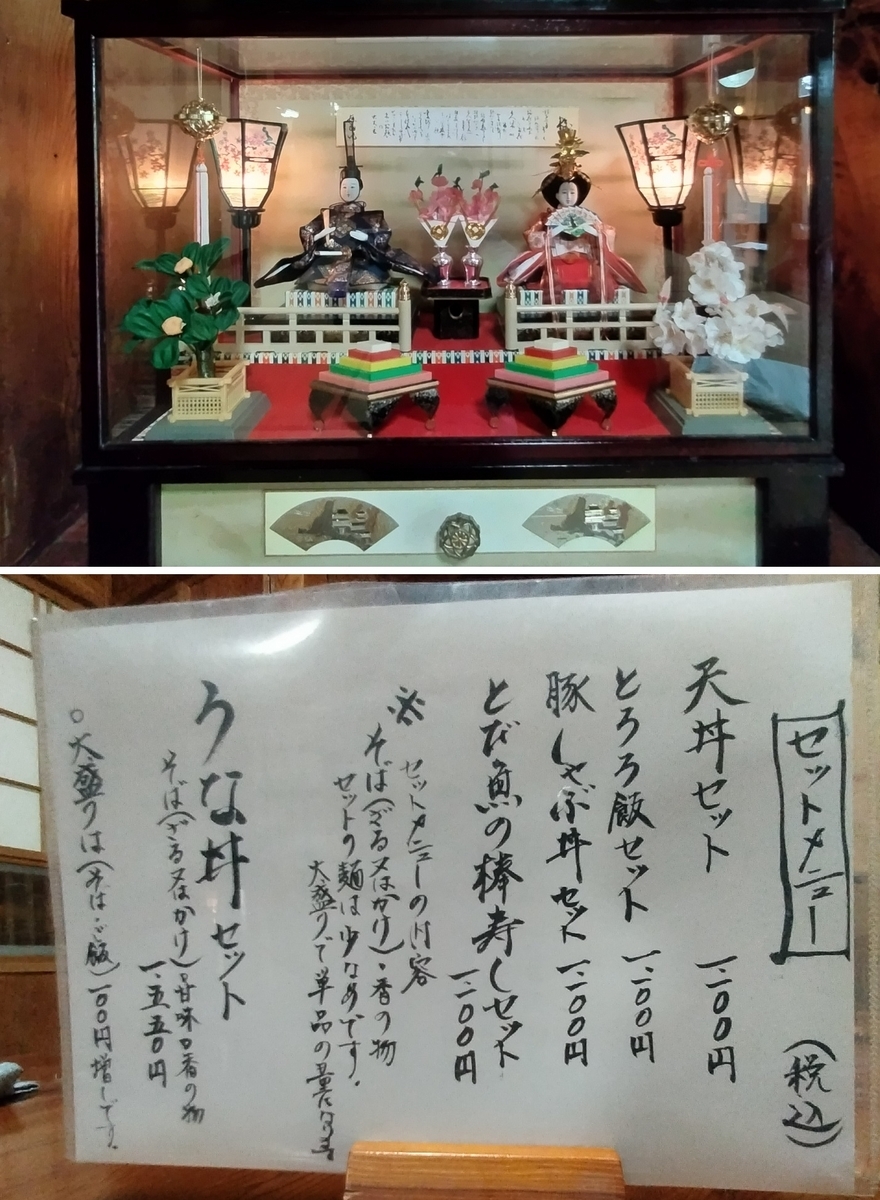 セットメニュー
(税込)
天丼セット 一、二〇〇円
とろろ飯セット 一、二〇〇円
豚しゃぶ丼セット 一、二〇〇円
とび魚の棒寿しセット 一、二〇〇円
※セットメニューの内容
そば(ざる又はかけ)・香の物
セットの麺は少なめです。
大盛りで単品の量になります
うな丼セット
そば(ざる又はかけ)甘味 香の物
一、五五〇円
○大盛りは(そば・ご飯)一〇〇円増しです。